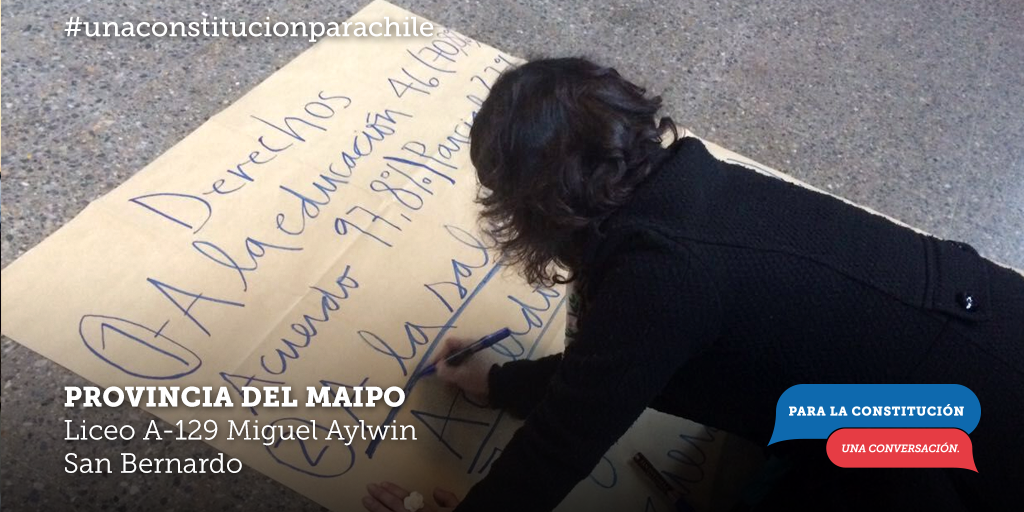 #unaconstitucionparachile
Derechos
1- A la educación 46 (70,
Acuerdo 97,8%/Parcial 2,2%
2- A la sal
PROVINCIA DEL MAIPO
Liceo A-129 Miguel Aylwin
San Bernardo
PARA LA CONSTITUCIÓN
UNA CONVERSACIÓN.